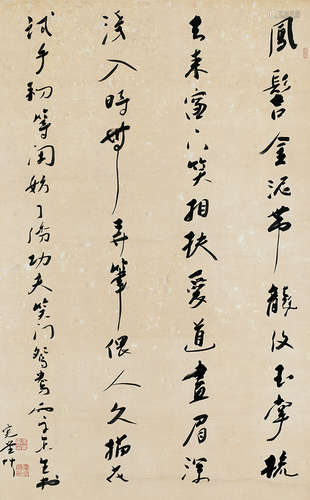 鳳髻金泥帶龍紋玉掌梳
去來窗下笑相扶愛道畫眉深
淺入時無弄筆偎人久描花
試手初等閒妨了繡功夫笑問鴛鴦兩字怎生書